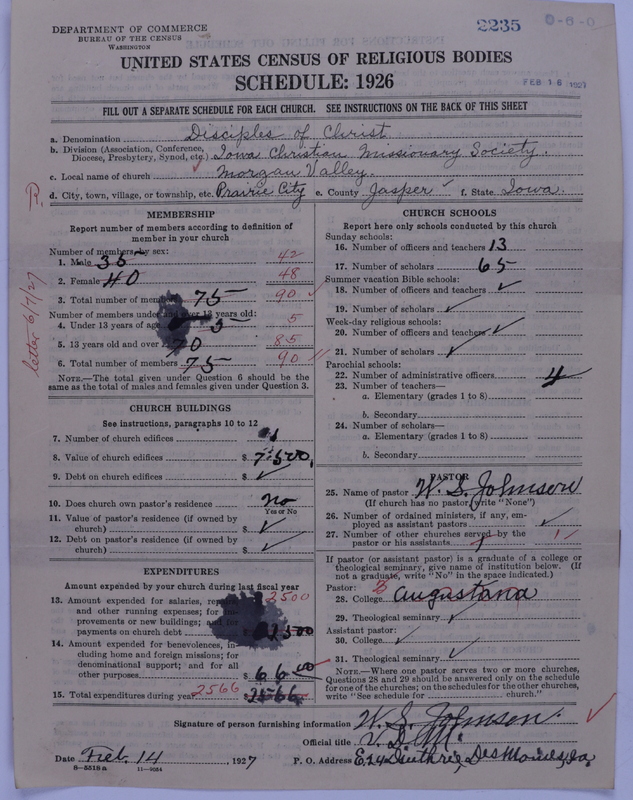 DEPARTMENT OF COMMERCE
BUREAU OF THE CENSUS
WASHINGTON
2235
0-6-0
FEB 16 1927
UNITED STATES CENSUS OF RELIGIOUS BODIES
SCHEDULE: 1926
FILL OUT A SEPARATE SCHEDULE FOR EACH CHURCH. SEE INSTRUCTIONS ON THE BACK OF THIS SHEET
a. Denomination Disciples of Christ
b. Division (Association, Conference, Diocese, Presbytery, Synod, etc.) Iowa Christian Missionary Society.
c. Local name of church Morgan Valley.
d. City, town, village, or township, etc. Prairie City e. County Jasper f. State Iowa.
letter 6/7/27
MEMBERSHIP
Report number of members according to definition of
member in your church
Number of members by sex:
1. Male 35 42
2. Female 40 48
3. Total number of members 75 90
Number of members under and over 13 years old:
4. Under 13 years of age 5 5
5. 13 years old and over 70 85
6. Total number of members 75 90
NOTE.—The total given under Question 6 should be the
same as the total of males and females given under Question 3.
CHURCH BUILDINGS
See instructions, paragraphs 10 to 12
7. Number of church edifices 1
8. Value of church edifices $ 7500.
9. Debt on church edifices $ ✓
10. Does church own pastor's residence no
Yes or No
11. Value of pastor's residence (if owned by
church) $ ✓
12. Debt on pastor's residence (if owned by
church) $ ✓
EXPENDITURES
Amount expended by your church during last fiscal year
13. Amount expended for salaries, repairs 2500
and other running expenses; for im-
provements or new buildings; and for
payments on church debt $
14. Amount expended for benevolences, in-
cluding home and foreign missions; for
denominational support; and for all
other purposes $ 66 00
15. Total expenditures during year 2566 $ 2566
CHURCH SCHOOLS
Report here only schools conducted by this church
Sunday schools:
16. Number of officers and teachers 13
17. Number of scholars 65
Summer vacation Bible schools:
18. Number of officers and teachers ✓
19. Number of scholars ✓
Week-day religious schools:
20. Number of officers and teachers ✓
21. Number of scholars ✓
Parochial schools:
22. Number of administrative officers 4
23. Number of teachers—
a. Elementary (grades 1 to 8)
b. Secondary
24. Number of scholars—
a. Elementary (grades 1 to 8)
b. Secondary
PASTOR
25. Name of pastor W. S. Johnson
(If church has no pastor, write "None")
26. Number of ordained ministers, if any, em-
ployed as assistant pastors ✓
27. Number of other churches served by the
pastor or his assistants 1 1
If pastor (or assistant pastor) is a graduate of a college or
theological seminary, give name of institution below. (If
not a graduate, write "No" in the space indicated.)
Pastor:
28. College Augustana
29. Theological seminary ✓
Assistant pastor:
30. College ✓
31. Theological seminary ✓
NOTE.—Where one pastor serves two or more churches,
Questions 28 and 29 should be answered only on the schedule
for one of the churches; on the schedules for the other churches,
write "See schedule for church."
Signature of person furnishing information W. S. Johnson.
Official title V. D. M.
Date Feb. 14, 1927 P. O. Address E. 24 Guthrie, Des Moines, Ia
8—5518a 11—9054